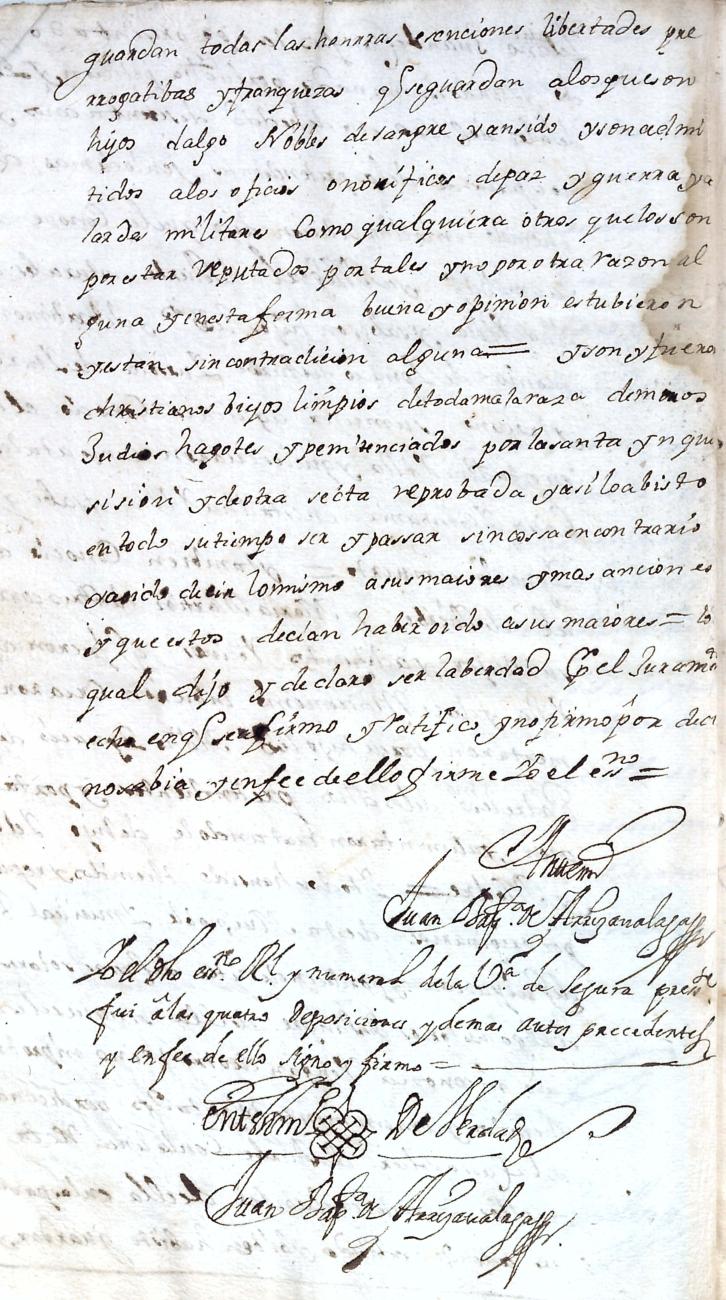 guardan todas las honrras esenciones libertades pre
rrogatibas y franquezas q se guardan a los que son
hijos dalgo Nobles de sangre y an sido y son admi
tidos a los oficios onorificos de paz y guerra y a
lardes militares Como qualquiera otros que los son
por estar Reputados por tales y no por otra razon al
guna y en esta forma buena y opinion estubieron
y estan sin contradicion alguna = y son y fuero
christianos biejos limpios de toda mala raza de moros
Judios hagotes y penitenciados por la santa ynqui
sision y de otra secta reprobada y asi lo a bisto
en todo su tiempo ser y passar sin cossa en contrario
y a oido decir lo mismo a sus maiores y mas ancianos
y que estos decian haber oido a sus maiores = lo
qual dijo y declaro ser la berdad so el Juramto
echo en q se afirmo y Ratifico y no firmo por decir
no sabia y en fee de ello firme Yo el essno =
Ante mi
Juan Bapta de Arrizavalaga
Yo el dho essno Rl y numeral de la Va de Segura presste
fui a las quatro deposiciones y demas autos precedentes
y en fee de ello signo y firmo =
En testimo De Verdad
Juan Bapta de Arrizavalaga